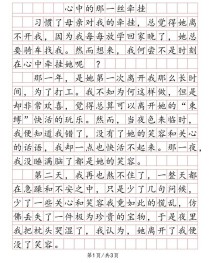 心中的那一丝牵挂
习惯了母亲对我的牵挂，总觉得她离
不开我，因为我每每放学回家晚了，她总
要骑车找我。然而想来，我何尝不是时刻
在心中牵挂她呢 ？
那一年，是她第一次离开我那么长时
间，为了打工。我不知为何这样做，但是
却非常欢喜，觉得总算可以离开她的“束
缚”快活的玩乐。然而，当夜色来临时，
我便知道我错了，没有了她的笑容和关心
的话语，我却一点也快活不起来。那一夜，
我没睡满脑了都是她的笑容。
第二天，我再也熬不住了，一整天都
在急躁和不安之中，只是少了几句问候，
少了一些关心和笑容我竟如此的慌乱，仿
佛丢失了一件极为珍贵的宝物，于是夜里
我把枕头哭湿了，我认为，她离开了我便
没了笑容。
第 1 页 / 共 3 页